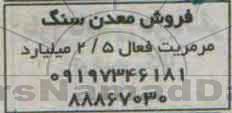 فروش معدن سنگ
مرمریت فعال ۲/۵ میلیارد
۰۹۱۹۷۳۴۶۱۸۱
۸۸۸۶۷۰۳۰